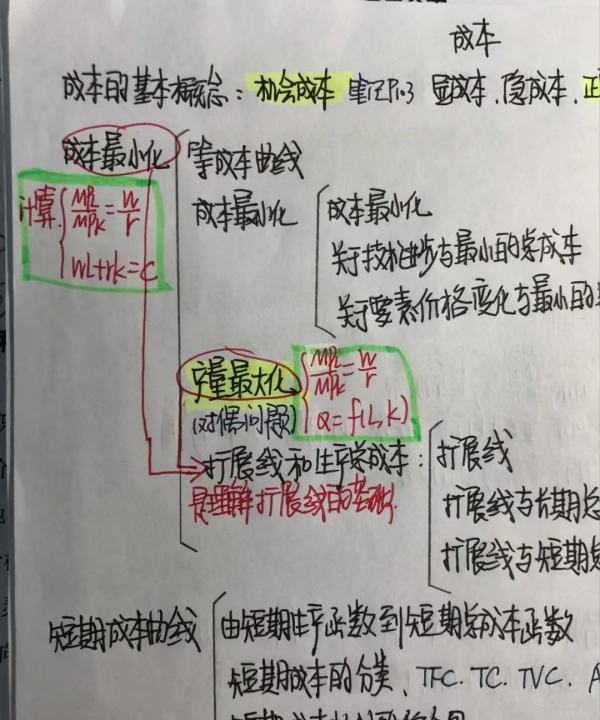 成本
成本的基本概念：机会成本 笔记P103 显成本、隐成本、正
成本最小化
等成本曲线
计算 MPL/MPK=w/r
wL+rk=c
成本最小化
成本最小化
关于技术进步与最小的总成本
关于要素价格变化与最小的
产量最大化
(对偶问题)
MPL/MPK=w/r
Q=f(L,K)
扩展线和生产总成本：
是理解扩展线的基础
扩展线
扩展线与长期总
扩展线与短期总
短期成本曲线
由短期生产函数到短期总成本函数
短期成本的分类、TFC.TC.TVC.A